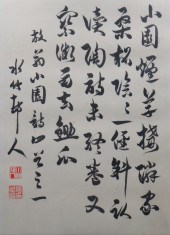 小園煙草接隣家
桑柘陰々一徑斜臥
讀陶詩未終卷又
乘微雨去鋤瓜
放翁小園詩四首之一
水竹邨人